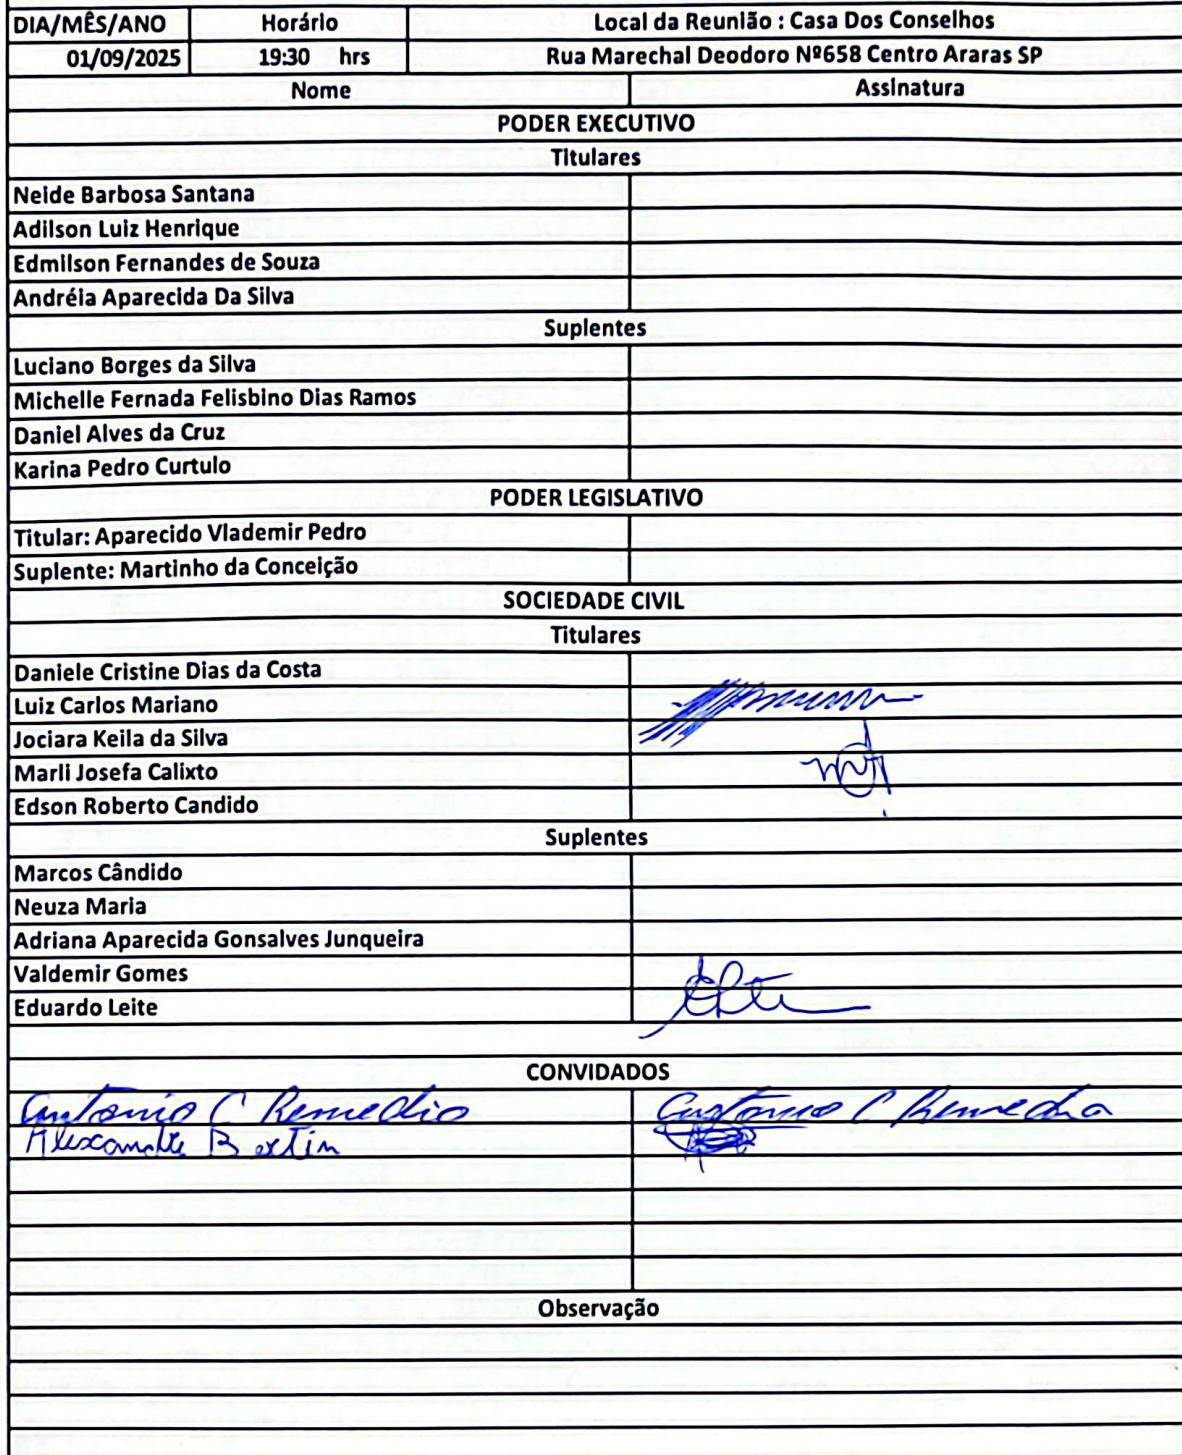 DIA/MÊS/ANO Horário Local da Reunião : Casa Dos Conselhos
01/09/2025 19:30 hrs Rua Marechal Deodoro Nº658 Centro Araras SP
Nome Assinatura
PODER EXECUTIVO
Titulares
Neide Barbosa Santana
Adilson Luiz Henrique
Edmilson Fernandes de Souza
Andréia Aparecida Da Silva
Suplentes
Luciano Borges da Silva
Michelle Fernada Felisbino Dias Ramos
Daniel Alves da Cruz
Karina Pedro Curtulo
PODER LEGISLATIVO
Titular: Aparecido Vlademir Pedro
Suplente: Martinho da Conceição
SOCIEDADE CIVIL
Titulares
Daniele Cristine Dias da Costa
Luiz Carlos Mariano
Jociara Keila da Silva
Marli Josefa Calixto
Edson Roberto Candido
Suplentes
Marcos Cândido
Neuza Maria
Adriana Aparecida Gonsalves Junqueira
Valdemir Gomes
Eduardo Leite
CONVIDADOS
Antonio C Remedio Antonio C Remedio
Alexandre Bertin
Observação